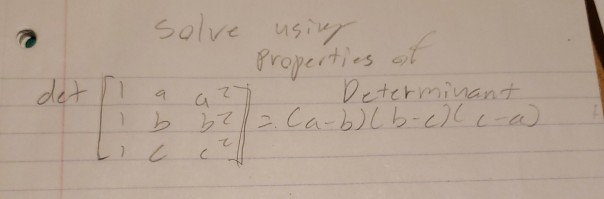 solve using
properties of
Determinant
det [1 a a²
1 b b²
1 c c²] = (a-b)(b-c)(c-a)